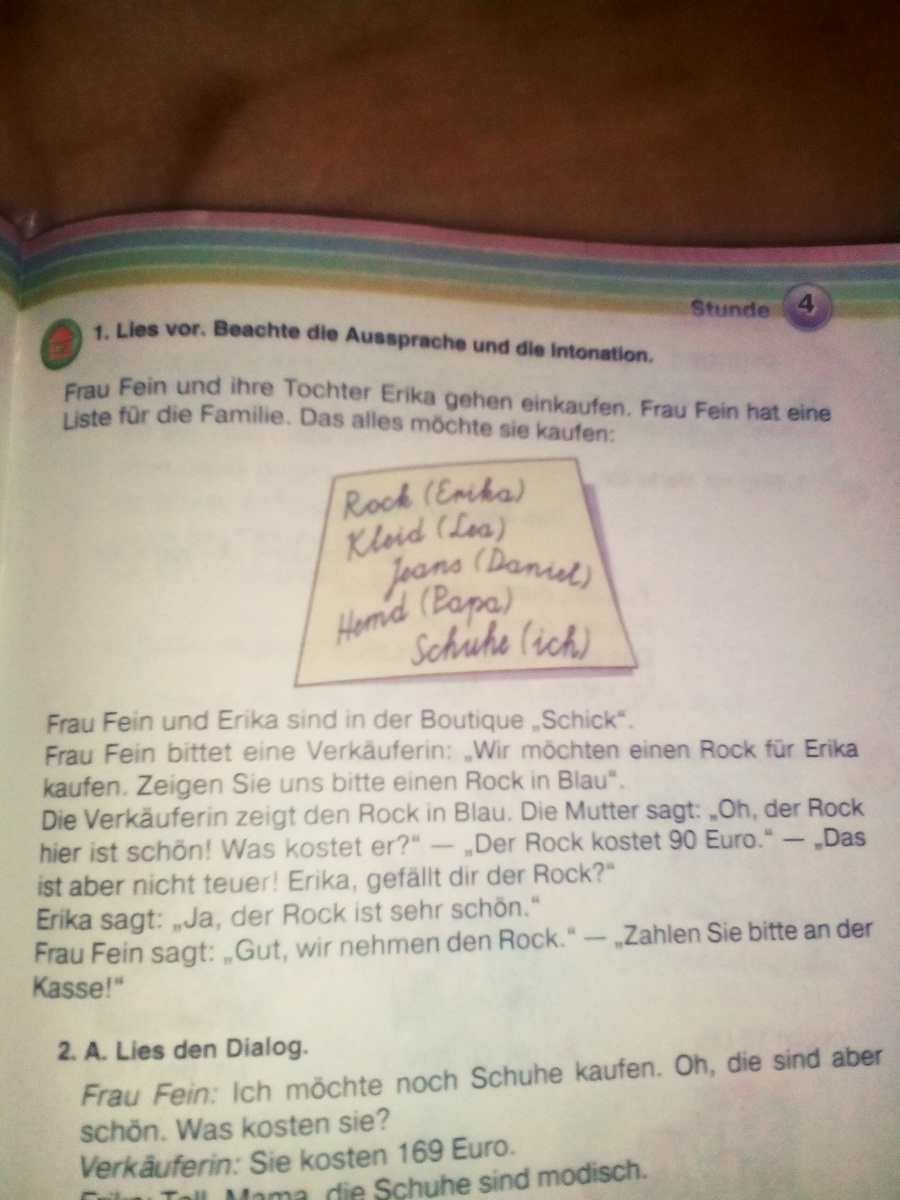 Stunde 4
1. Lies vor. Beachte die Aussprache und die Intonation.
Frau Fein und ihre Tochter Erika gehen einkaufen. Frau Fein hat eine
Liste für die Familie. Das alles möchte sie kaufen:
Rock (Erika)
Kleid (Lea)
Jeans (Daniel)
Hemd (Papa)
Schuhe (ich)
Frau Fein und Erika sind in der Boutique „Schick“.
Frau Fein bittet eine Verkäuferin: „Wir möchten einen Rock für Erika
kaufen. Zeigen Sie uns bitte einen Rock in Blau“.
Die Verkäuferin zeigt den Rock in Blau. Die Mutter sagt: „Oh, der Rock
hier ist schön! Was kostet er?“ — „Der Rock kostet 90 Euro.“ — „Das
ist aber nicht teuer! Erika, gefällt dir der Rock?“
Erika sagt: „Ja, der Rock ist sehr schön.“
Frau Fein sagt: „Gut, wir nehmen den Rock.“ — „Zahlen Sie bitte an der
Kasse!“
2. A. Lies den Dialog.
Frau Fein: Ich möchte noch Schuhe kaufen. Oh, die sind aber
schön. Was kosten sie?
Verkäuferin: Sie kosten 169 Euro.
Erika: Toll, Mama, die Schuhe sind modisch.